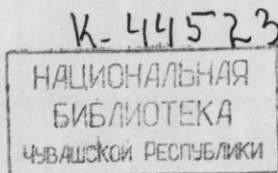 К-44523
НАЦИОНАЛЬНАЯ
БИБЛИОТЕКА
ЧУВАШСКОЙ РЕСПУБЛИКИ